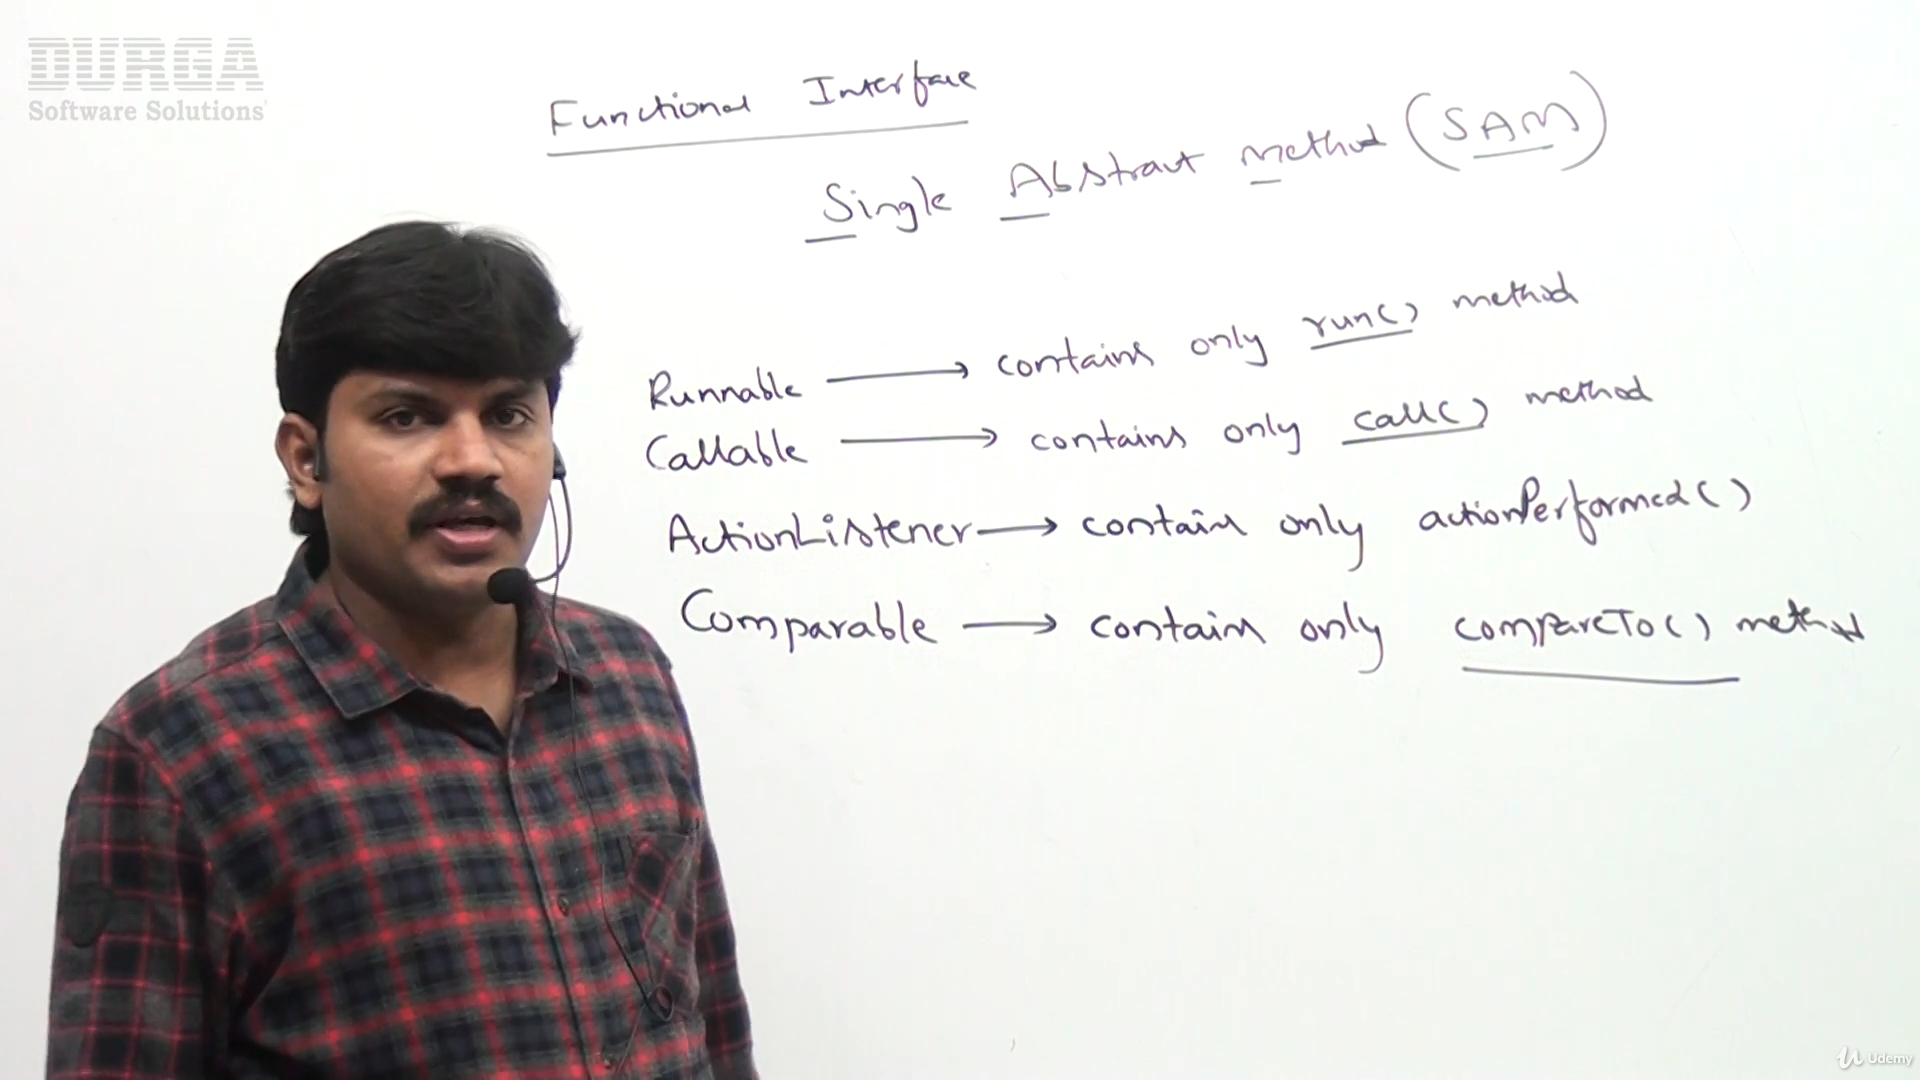 DURGA
Software Solutions
Functional Interface
Single Abstract Method (SAM)
Runnable → contains only run() method
Callable → contains only call() method
ActionListener → contains only actionPerformed()
Comparable → contains only compareTo() method
Udemy